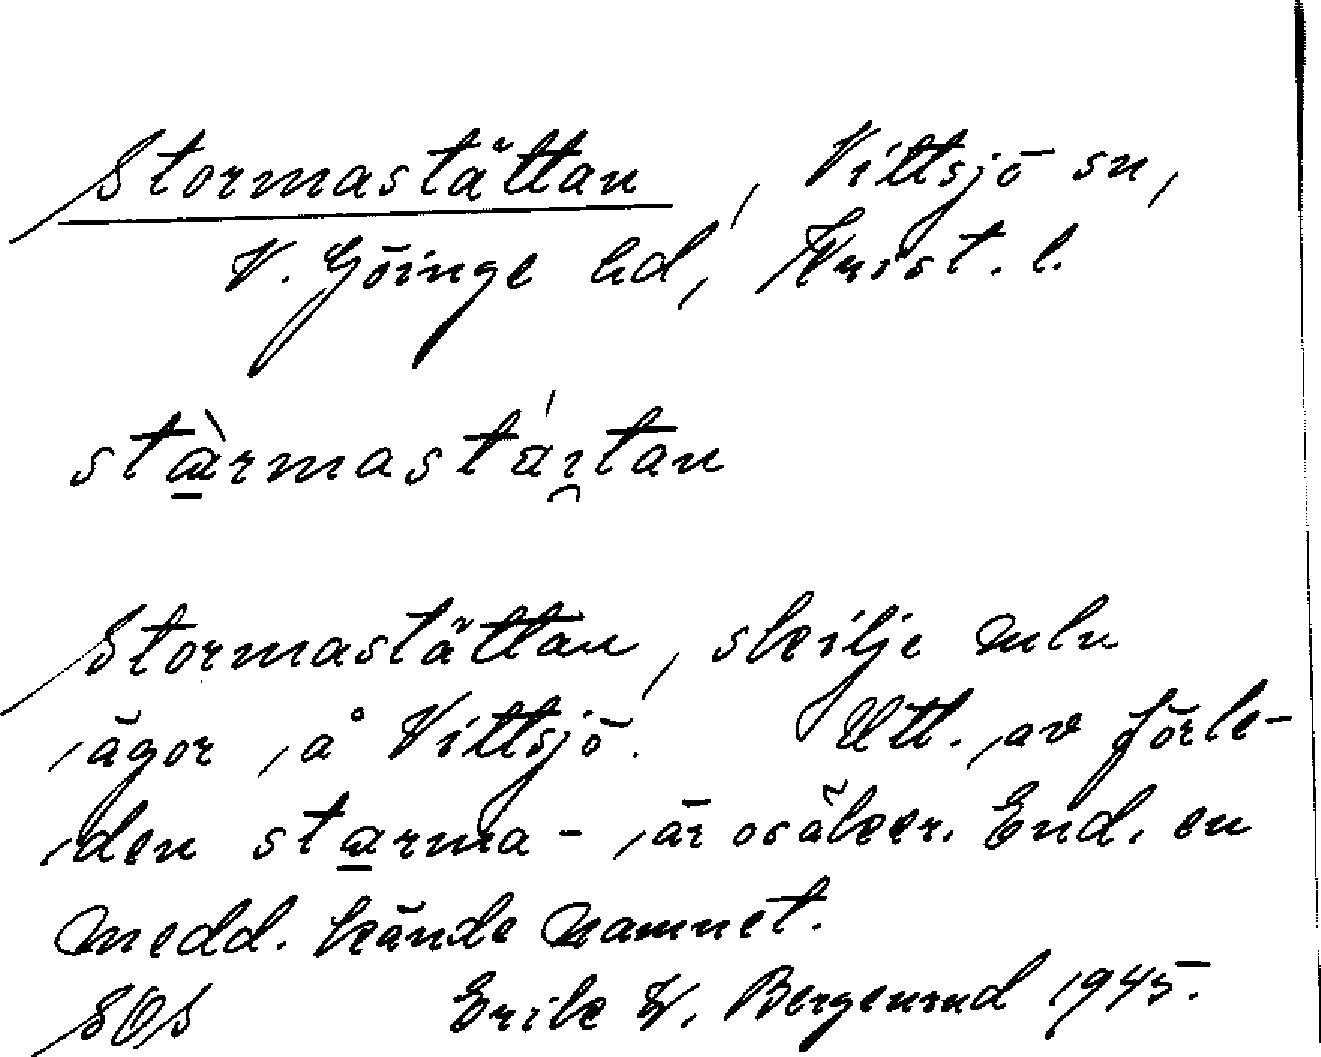 Stormastättan, Vittsjö sn,
V. Göinge hd, Krist. l.
stàrmastáitan
Stormastättan, skilje mln
ägor å Vittsjö. Utt. av förle-
den starma- är osäker. End. en
medd. kände namnet.
SOS Erik W. Bergenrud 1945.